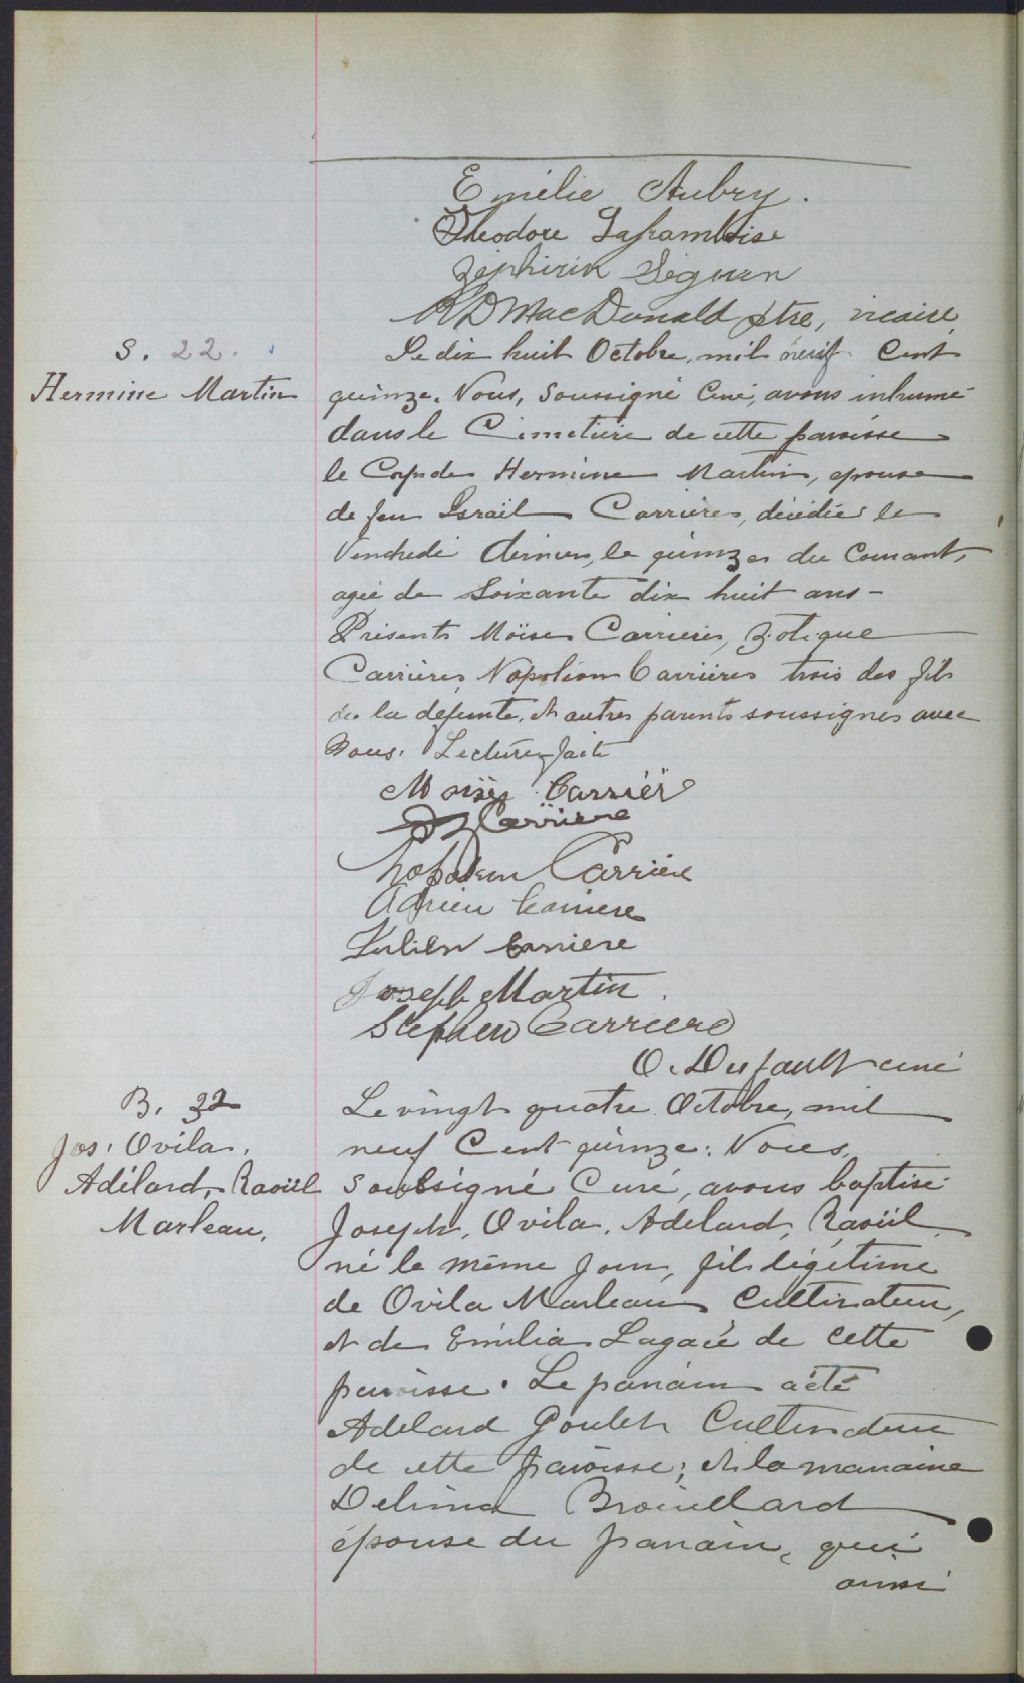 Emélie Aubry.
Théodore Laframboise
Zéphirin Séguin
RD MacDonald ptre, vicaire
S. 22.
Hermine Martin
Le dix huit Octobre, mil neuf Cent
quinze. Nous, Soussigné Curé, avons inhumé
dans le Cimetière de cette paroisse
le Corps de Hermine Martin, epouse
de feu Israël Carrières, décédée le
Vendredi dernier, le quinze du Courant,
agée de Soixante dix huit ans -
Présents Moïse Carrières, Zotique
Carrières, Napoléon Carrières trois des fils
de la défunte, et autres parents soussignés avec
Nous. Lecture faite
Moïse Carrièr
Z Carriere
Napoleon Carrière
Adrien Carriere
Julien Carriere
Joseph Martin.
Stephen Carriere
O. Dufault curé
B. 32
Jos. Ovila.
Adélard, Raoül
Marleau.
Le vingt quatre Octobre, mil
neuf Cent quinze: Nous,
Soussigné Curé, avons baptisé
Joseph, Ovila, Adelard, Raoül
né le même jour, fils légitime
de Ovila Marleau Cultivateur,
et de Emilia Lagacé de cette
paroisse. Le parain a été
Adelard Goulet Cultivateur
de cette paroisse; et la maraine
Delima Brouillard
épouse du parain, qui
ainsi